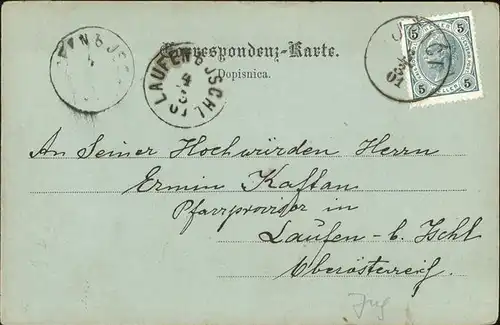 Correspondenz-Karte.
Dopisnica.
LAUFEN b/ISCHL
5 5
5 5
01
An Seiner Hochwürden Herrn
Ermin Kaftan
Pfarrprovisor in
Laufen - b. Ischl
Oberösterreich.